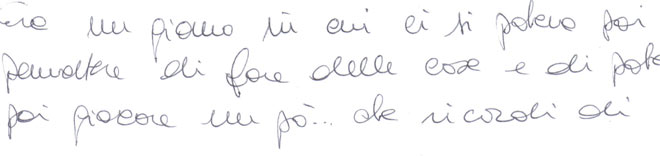 Era un giorno in cui ci si poteva poi
permettere di fare delle cose e di pote
poi giocare un pò... che ricordi di